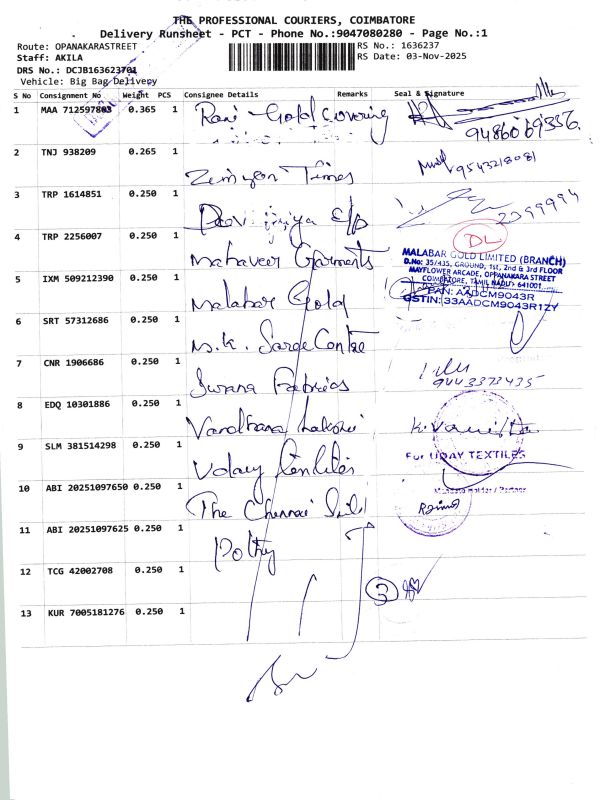 THE PROFESSIONAL COURIERS, COIMBATORE
Delivery Runsheet - PCT - Phone No.:9047080280 - Page No.:1
Route: OPANAKARASTREET
RS No.: 1636237
Staff: AKILA
RS Date: 03-Nov-2025
DRS No.: DCJB163623701
Vehicle: Big Bag Delivery
S No Consignment No Weight PCS Consignee Details Remarks Seal & Signature
1 MAA 712597803 0.365 1 Ravi Gold Covering
9486069356
2 TNJ 938209 0.265 1 Zimson Times
9543218081
3 TRP 1614851 0.250 1
2399994
4 TRP 2256007 0.250 1 Mahaveer Garments
DL
MALABAR GOLD LIMITED (BRANCH)
D.No: 35/435, GROUND, 1st, 2nd & 3rd FLOOR
MAYFLOWER ARCADE, OPPANAKARA STREET
COIMBATORE, TAMIL NADU - 641001
PAN: AADCM9043R
GSTIN: 33AADCM9043R1ZY
5 IXM 509212390 0.250 1 Malabar Gold
6 SRT 57312686 0.250 1 M.K. Saree Centre
7 CNR 1906686 0.250 1 Swana Fabrics
9443373435
8 EDQ 10301886 0.250 1 Vandhana Lakshmi
9 SLM 381514298 0.250 1 Uday Textiles
For UDAY TEXTILES
10 ABI 20251097650 0.250 1 The Chennai Silk
11 ABI 20251097625 0.250 1 Pothy
12 TCG 42002708 0.250 1
13 KUR 7005181276 0.250 1